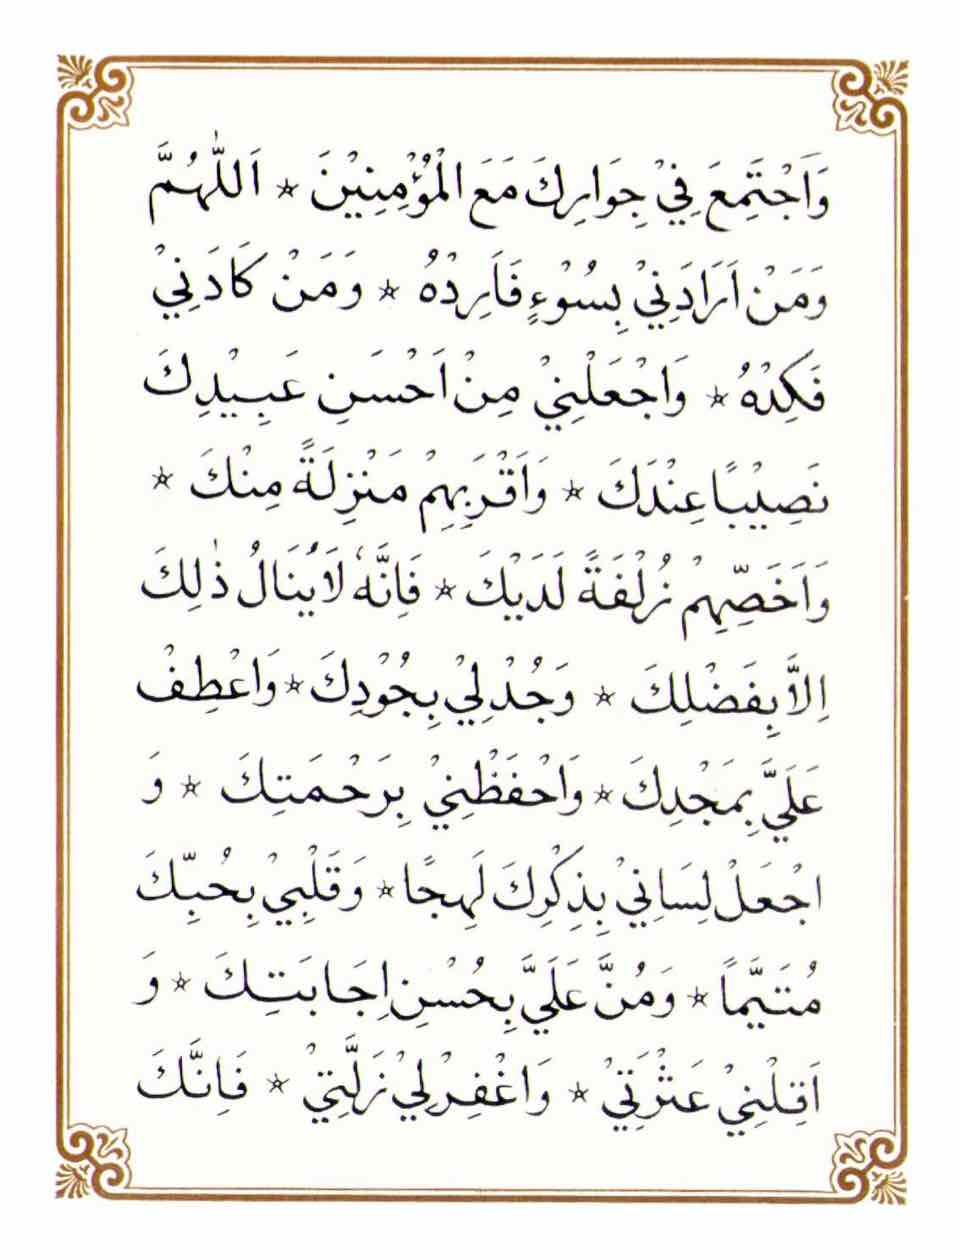 وَاَجْتَمِعَ فِيْ جِوَارِكَ مَعَ الْمُؤْمِنِيْنَ ☆ اَللّٰهُمَّ
وَمَنْ اَرَادَنِيْ بِسُوْءٍ فَاَرِدْهُ ☆ وَمَنْ كَادَنِيْ
فَكِدْهُ ☆ وَاجْعَلْنِيْ مِنْ اَحْسَنِ عَبِيْدِكَ
نَصِيْبًا عِنْدَكَ ☆ وَاَقْرَبِهِمْ مَنْزِلَةً مِنْكَ ☆
وَاَخَصِّهِمْ زُلْفَةً لَدَيْكَ ☆ فَاِنَّهُ لَا يُنَالُ ذٰلِكَ
اِلَّا بِفَضْلِكَ ☆ وَجُدْ لِيْ بِجُوْدِكَ ☆ وَاعْطِفْ
عَلَيَّ بِمَجْدِكَ ☆ وَاحْفَظْنِيْ بِرَحْمَتِكَ ☆ وَ
اجْعَلْ لِسَانِيْ بِذِكْرِكَ لَهِجًا ☆ وَقَلْبِيْ بِحُبِّكَ
مُتَيَّمًا ☆ وَمُنَّ عَلَيَّ بِحُسْنِ اِجَابَتِكَ ☆ وَ
اَقِلْنِيْ عَثْرَتِيْ ☆ وَاغْفِرْ لِيْ زَلَّتِيْ ☆ فَاِنَّكَ